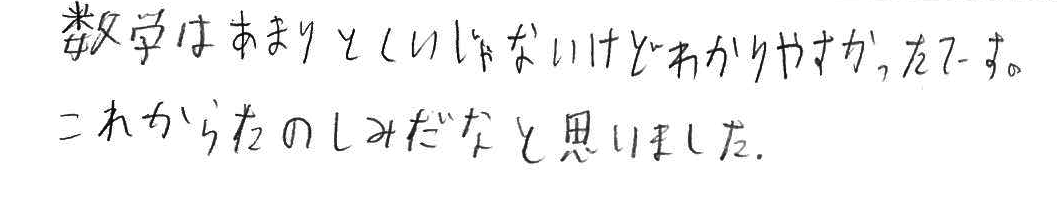 数学はあまりとくいじゃないけどわかりやすかったです。
これからたのしみだなと思いました.